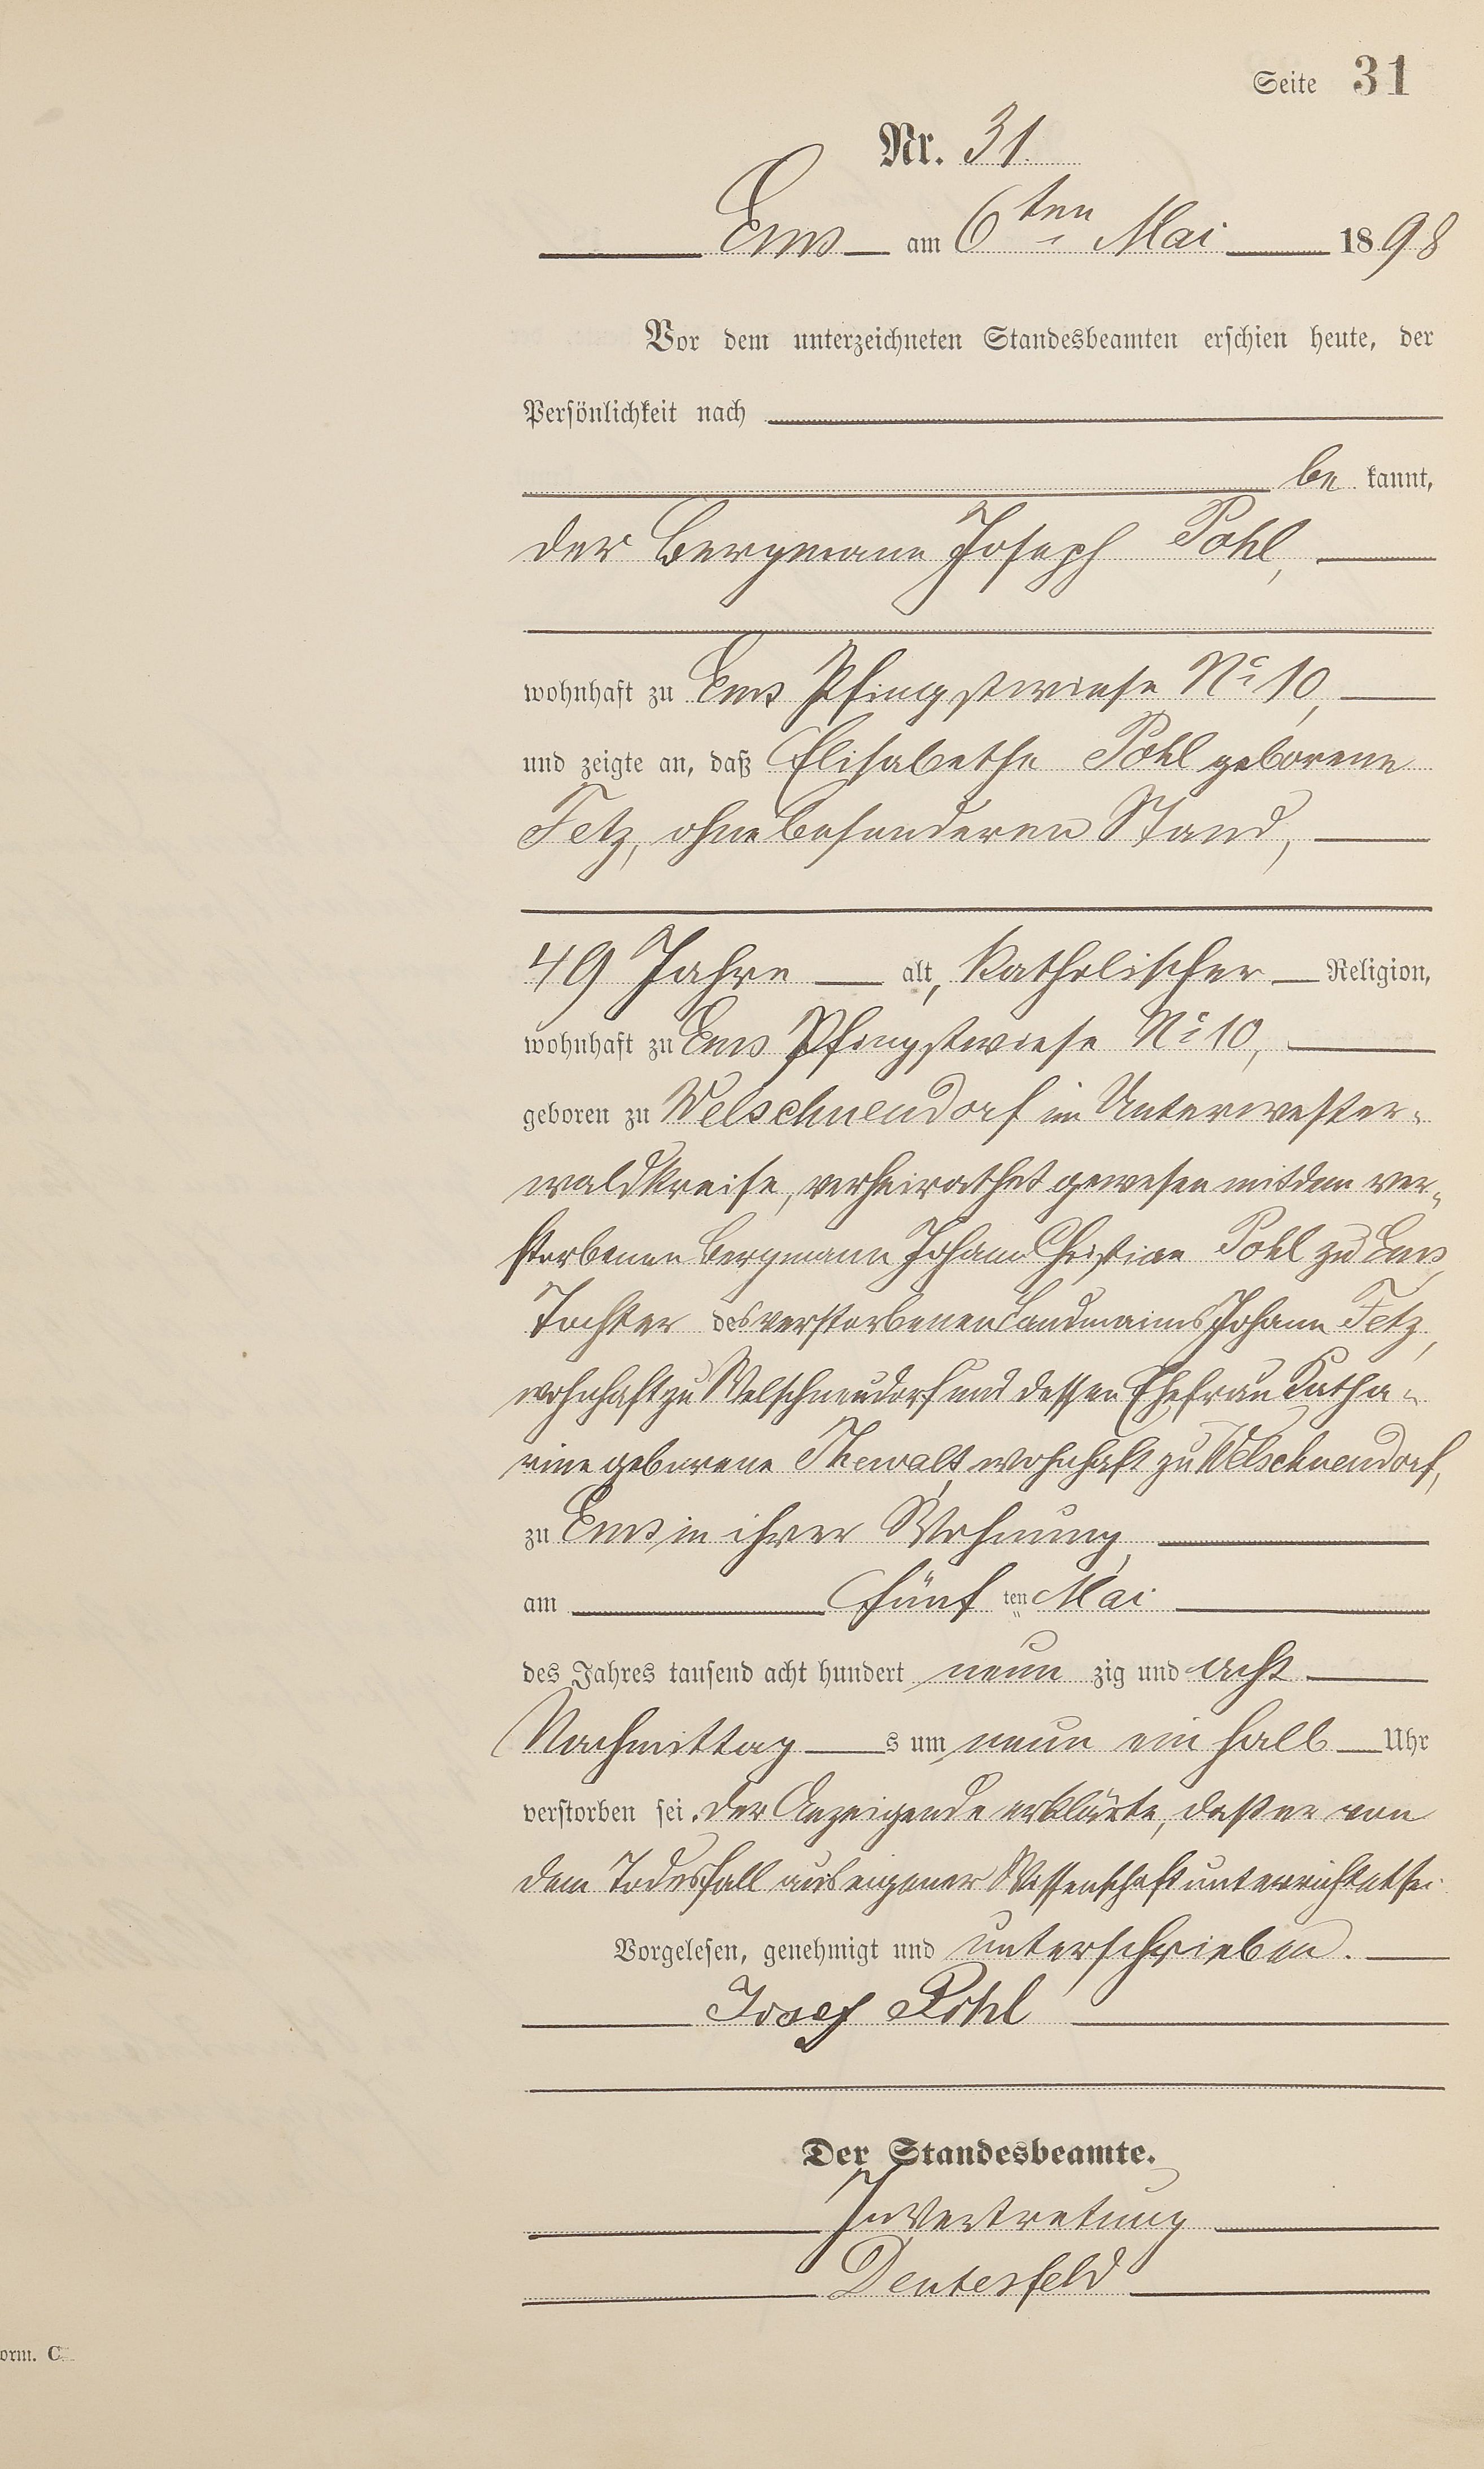 Seite 31
Nr. 31.
Ems am 6ten Mai 1898
Vor dem unterzeichneten Standesbeamten erschien heute, der
Persönlichkeit nach
be kannt,
der Bergmann Joseph Pohl,
wohnhaft zu Ems Pfingstwiese No 10,
und zeigte an, daß Elisabetha Pohl geborene
Fetz, ohne besonderen Stand,
49 Jahre alt, katholischer Religion,
wohnhaft zu Ems Pfingstwiese No 10,
geboren zu Welschneudorf im Unterwester-
waldkreise, verheirathet gewesen mit dem ver-
storbenen Bergmann Johann Christian Pohl zu Ems,
Tochter des verstorbenen Landmanns Johann Fetz,
wohnhaft zu Welschneudorf und dessen Ehefrau Katha-
rine geborene Thewalt, wohnhaft zu Welschneudorf,
zu Ems in ihrer Wohnung,
am fünf ten Mai
des Jahres tausend acht hundert neun zig und acht
Nachmittag s um neun ein halb Uhr
verstorben sei. Der Anzeigende erklärte, daß er von
dem Todesfall aus eigener Wissenschaft unterrichtet sei.
Vorgelesen, genehmigt und unterschrieben.
Josef Pohl
Der Standesbeamte.
In Vertretung
Deutesfeld
orm. C.